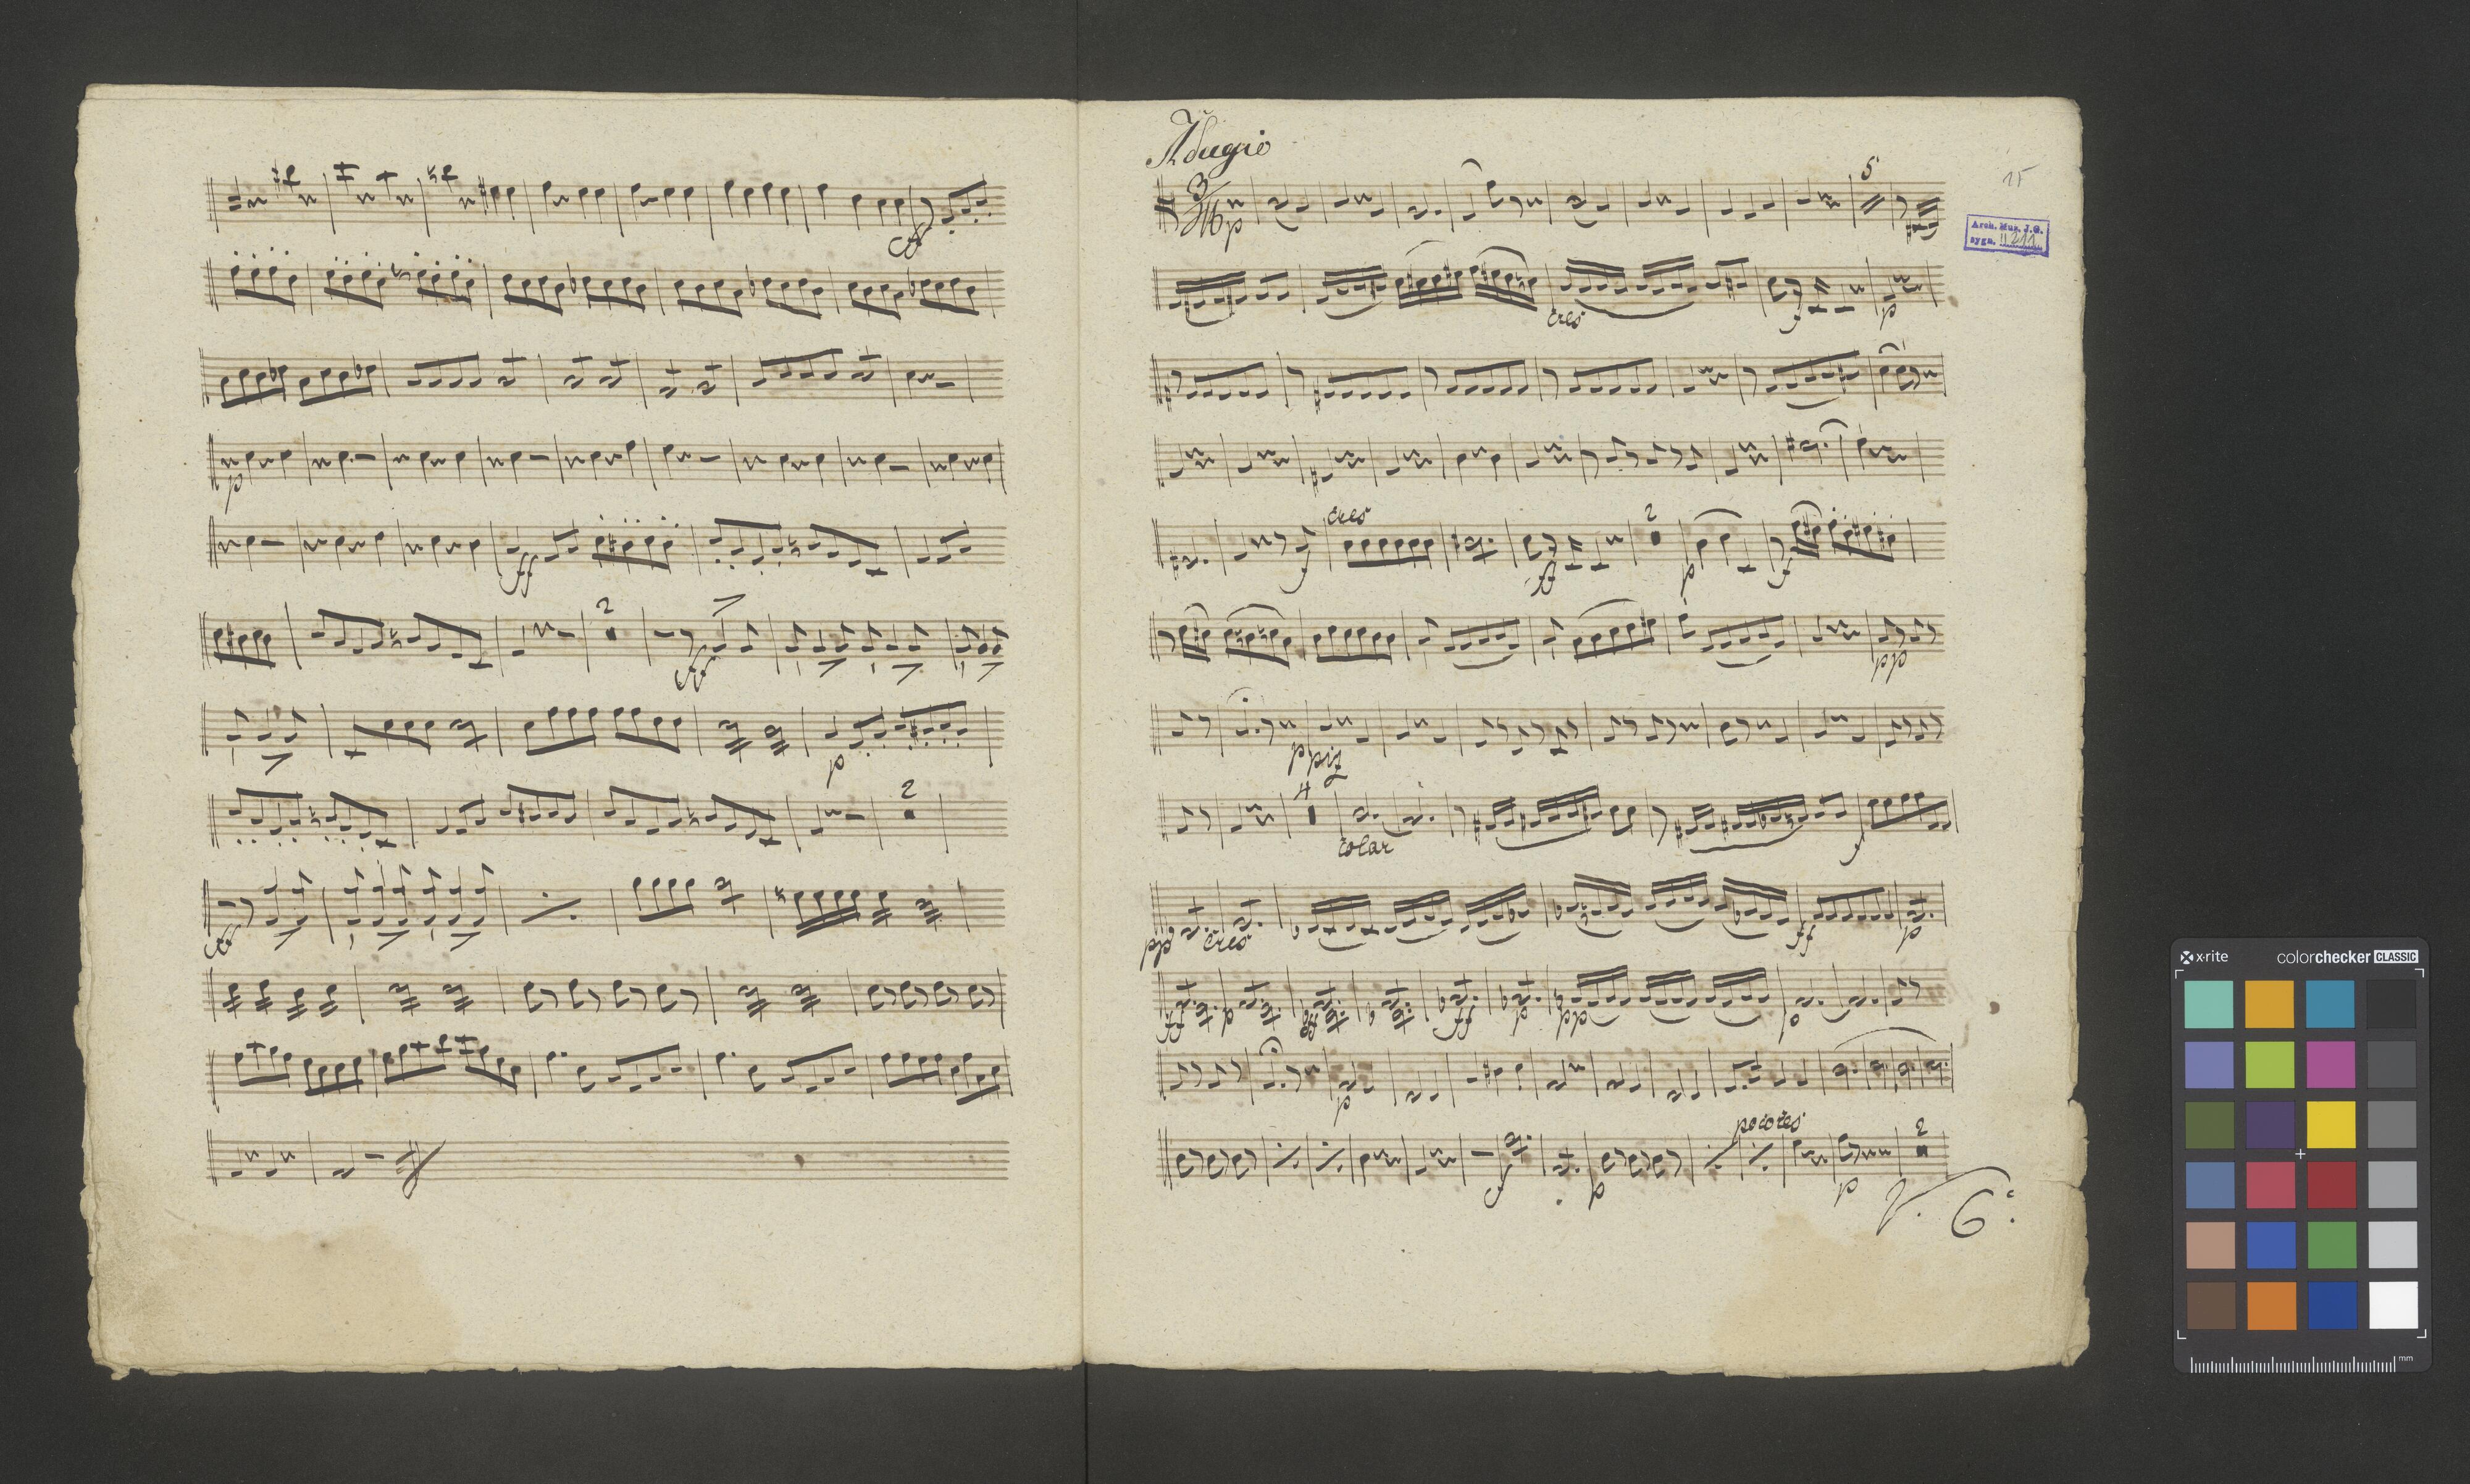 ff
p
ff
2
ff
p
2
ff
Adagio
15
3
p
5
Arch. Mus. J.G.
sygn. II 211
cres
f
p
cres
2
f
ff
p
f
pp
p
piz
4
colar
f
pp
cres
ff
p
ff
p
ff
ff
p
pp
p
p
poco cres
2
f
p
p
x-rite
colorchecker CLASSIC
mm